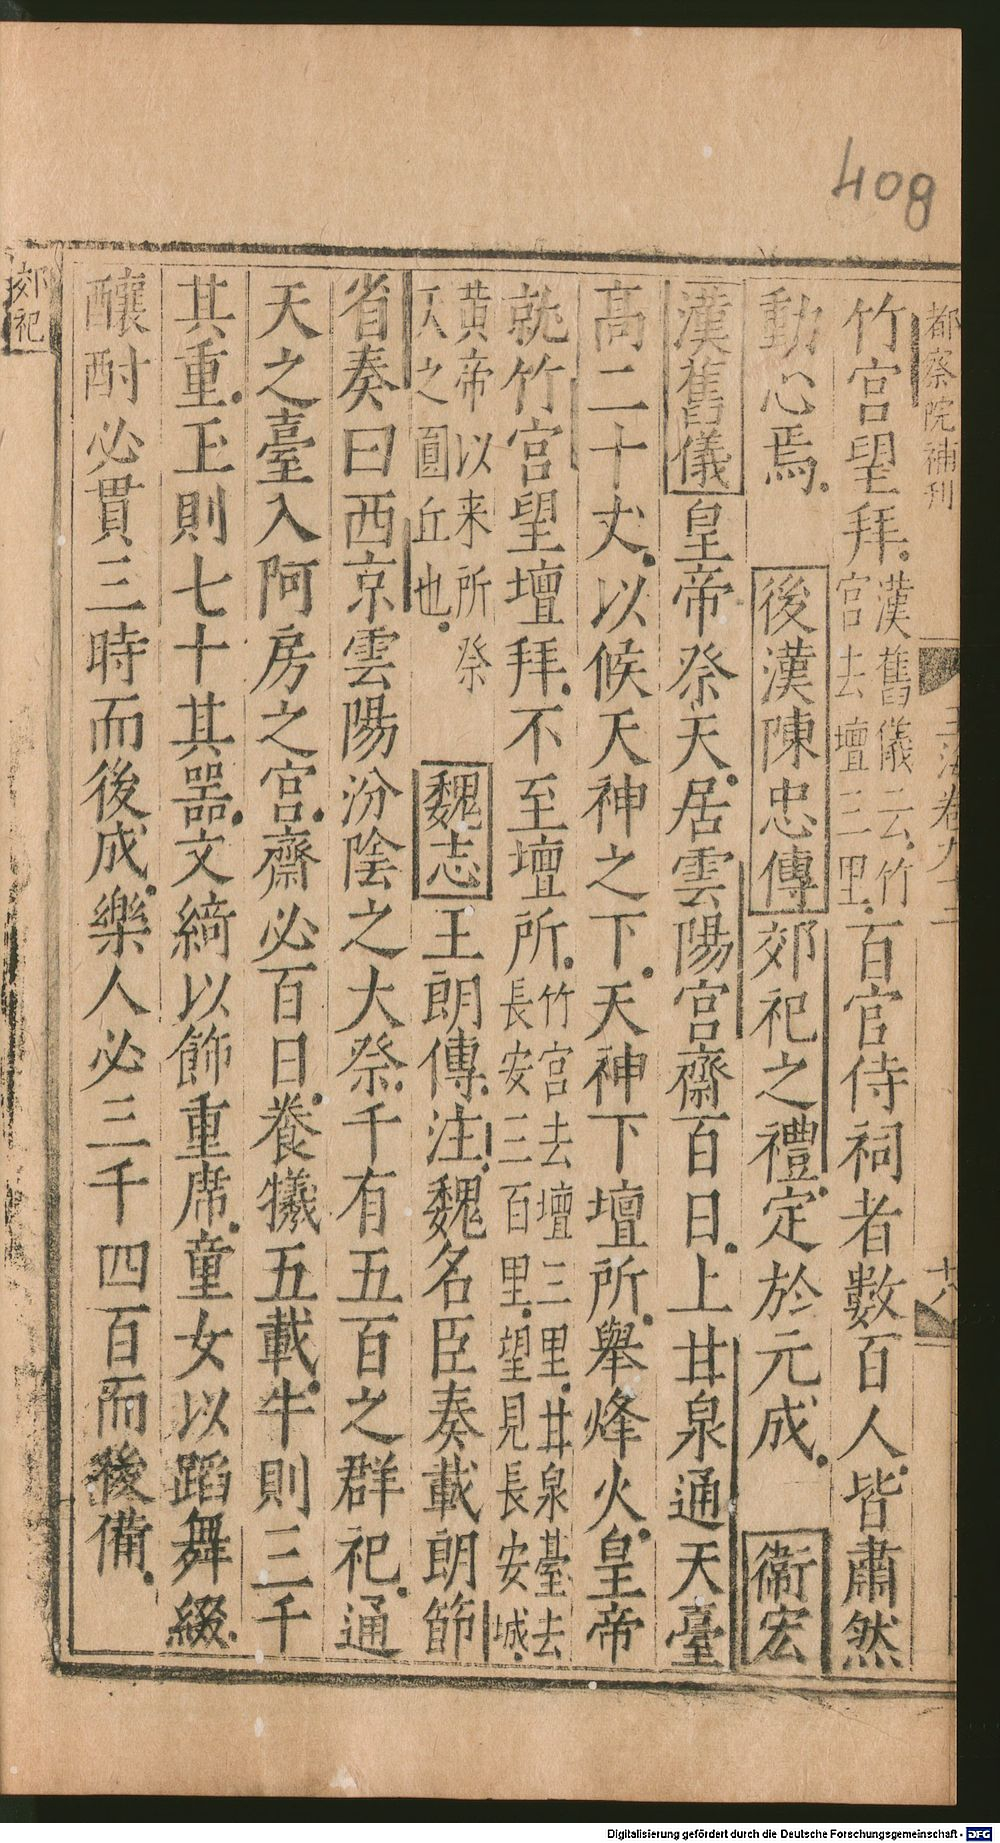 408
都察院補刊
玉海卷九十二
十八
竹宮望拜漢舊儀云竹宮去壇三里百官侍祠者數百人皆肅然
動心焉 後漢陳忠傳郊祀之禮定於元成 衞宏
漢舊儀皇帝祭天居雲陽宮齋百日上甘泉通天臺
高二十丈以候天神之下天神下壇所舉烽火皇帝
就竹宮望壇拜不至壇所竹宮去壇三里甘泉臺去長安三百里望見長安城
黃帝以來所祭天之圓丘也 魏志王朗傳注魏名臣奏載朗節
省奏曰西京雲陽汾陰之大祭千有五百之群祀通
天之臺入阿房之宮齋必百日養犧五載牛則三千
其重玉則七十其器文綺以飾重席童女以蹈舞綴
釀酎必貫三時而後成樂人必三千四百而後備
郊祀
Digitalisierung gefördert durch die Deutsche Forschungsgemeinschaft - DFG